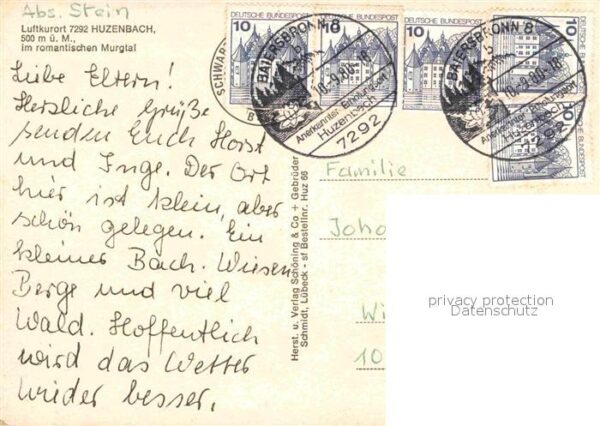 Abs. Stein
Luftkurort 7292 HUZENBACH,
500 m ü. M.,
im romantischen Murgtal
Liebe Eltern!
Herzliche Grüße
senden Euch Horst
und Inge. Der Ort
hier ist klein, aber
schön gelegen. Ein
kleiner Bach. Wiesen
Berge und viel
Wald. Hoffentlich
wird das Wetter
wieder besser.
Herst. u. Verlag Schöning & Co + Gebrüder
Schmidt, Lübeck - sf Bestellnr. Huz 66
10 DEUTSCHE BUNDESPOST
10 DEUTSCHE BUNDESPOST
10 DEUTSCHE BUNDESPOST
10 DEUTSCHE BUNDESPOST
10 DEUTSCHE BUNDESPOST
BAIERSBRONN 8
10.-9.80.-18
Anerkannter Erholungsort
Huzenbach
7292
BAIERSBRONN 8
-9.80.-18
Anerkannter Erholungsort
Huzenbach
7292
Familie
Joho
Wi
10
privacy protection
Datenschutz